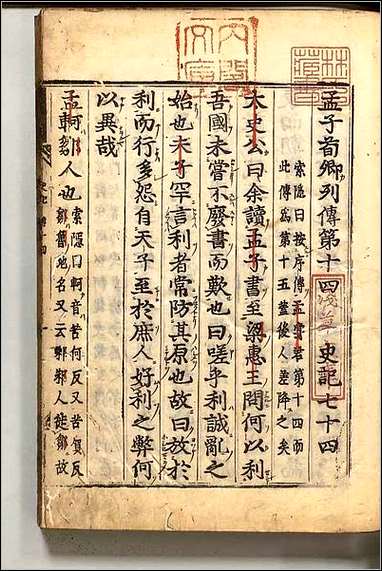 孟子荀卿列傳第十四　史記七十四
索隱曰按序傳孟嘗君第十四而
此傳為第十五蓋後人差降之矣
太史公曰余讀孟子書至梁惠王問何以利
吾國未嘗不廢書而歎也曰嗟乎利誠亂之
始也夫子罕言利者常防其原也故曰放於
利而行多怨自天子至於庶人好利之弊何
以異哉
孟軻鄒人也
索隱曰軻音苦何反又苦賀反
鄒魯地名又云邾邾人徙鄒故
內閣
文庫
林
藏書
淺草